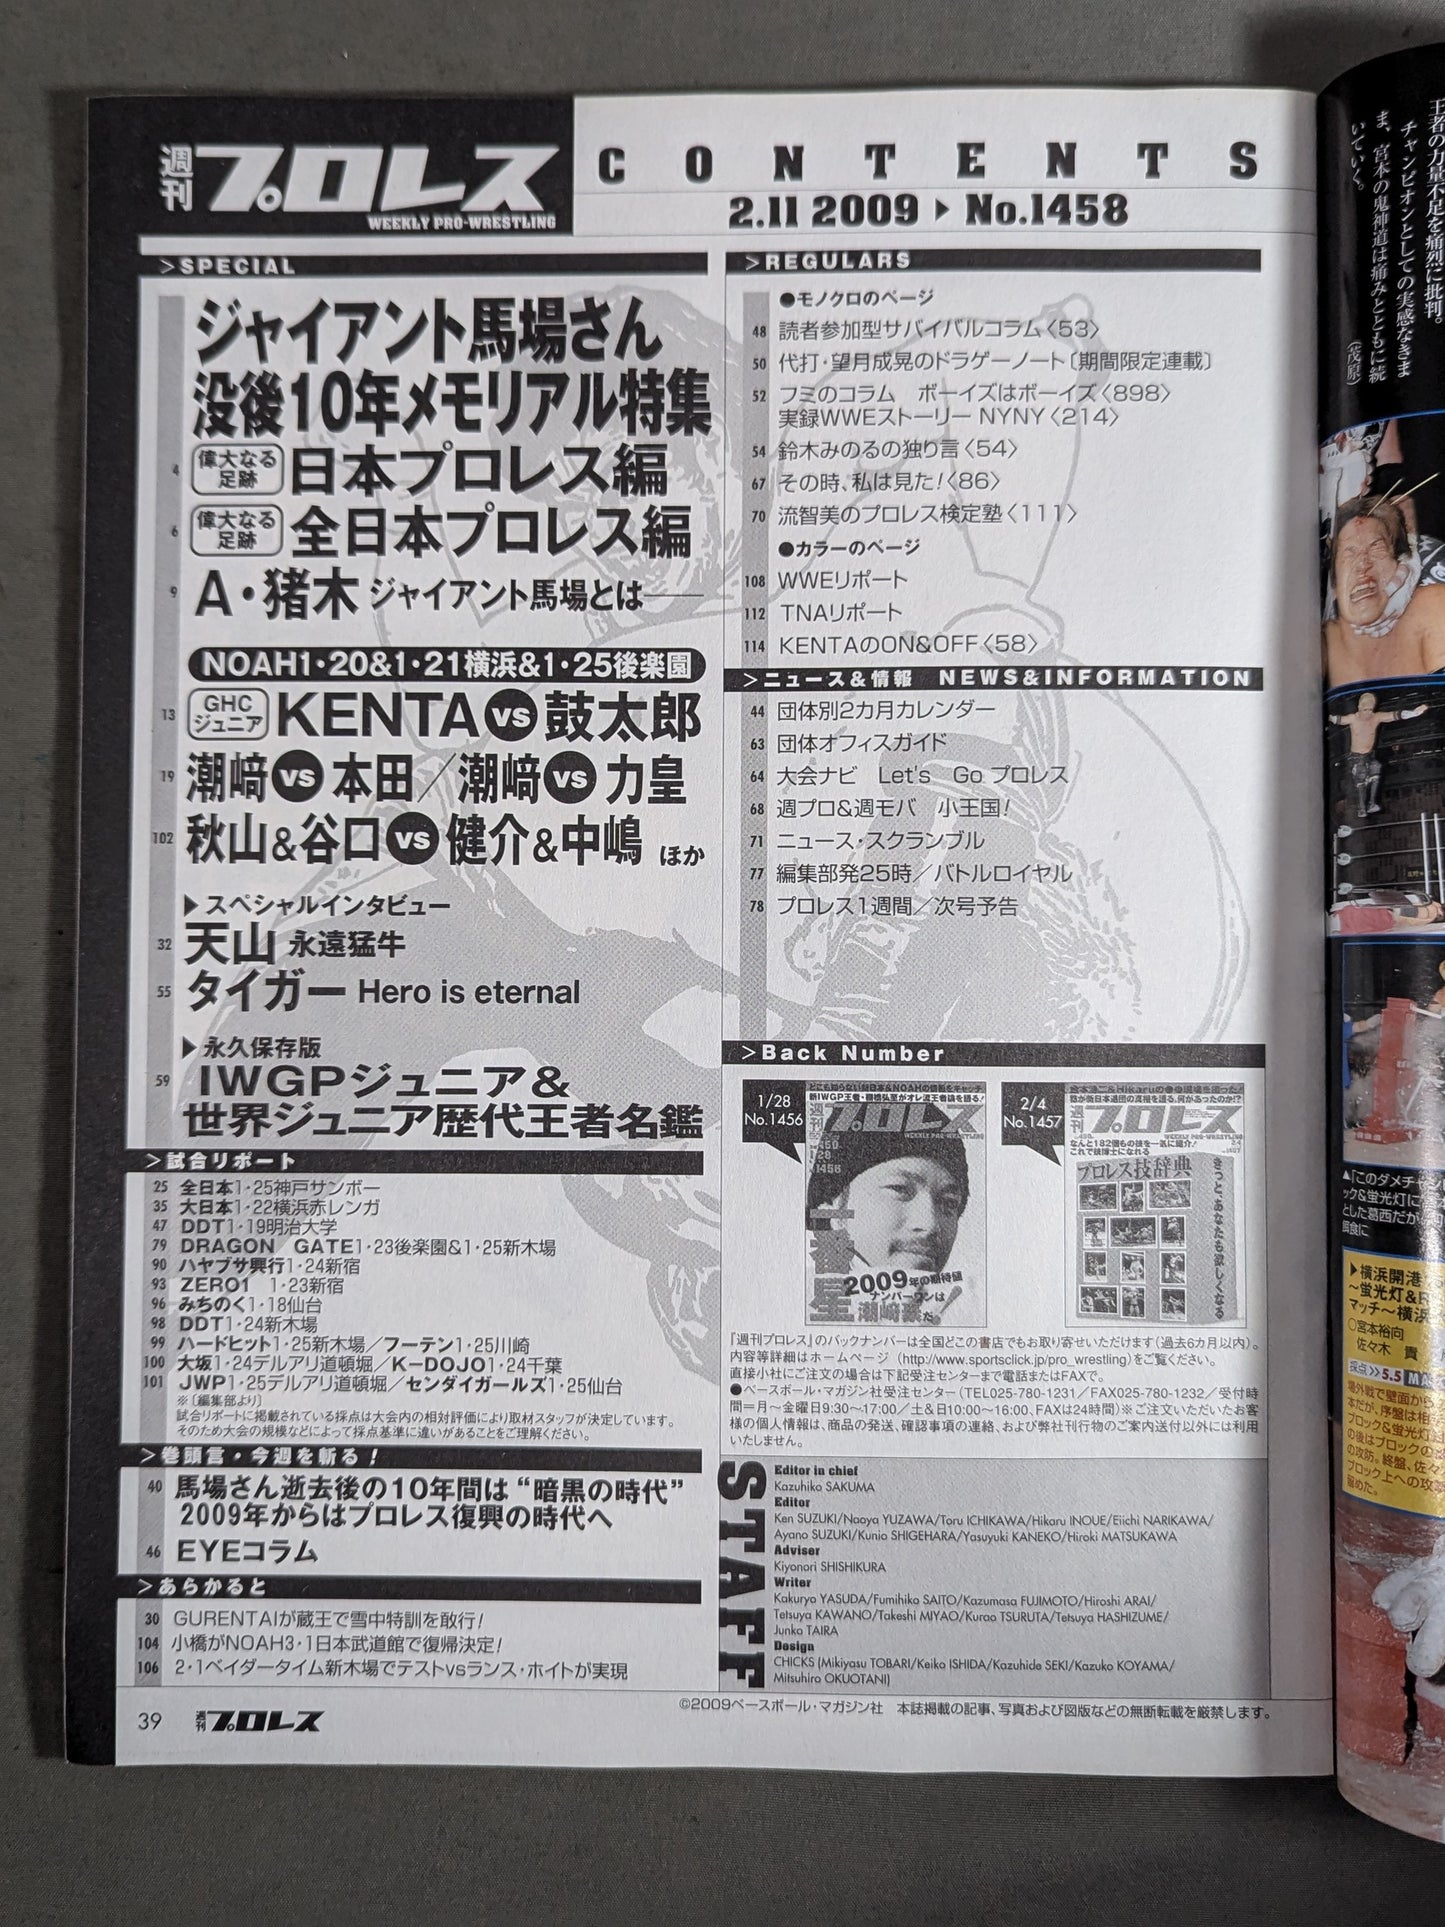 週刊プロレス
WEEKLY PRO-WRESTLING
CONTENTS
2.11 2009 ▶ No.1458
>SPECIAL
ジャイアント馬場さん
没後10年メモリアル特集
4 偉大なる足跡 日本プロレス編
6 偉大なる足跡 全日本プロレス編
9 A・猪木 ジャイアント馬場とは――
NOAH1・20&1・21横浜&1・25後楽園
13 GHCジュニア KENTA vs 鼓太郎
19 潮﨑 vs 本田／潮﨑 vs 力皇
102 秋山&谷口 vs 健介&中嶋 ほか
▶スペシャルインタビュー
32 天山 永遠猛牛
55 タイガー Hero is eternal
▶永久保存版
59 IWGPジュニア&
世界ジュニア歴代王者名鑑
>試合リポート
25 全日本1・25神戸サンボー
35 大日本1・22横浜赤レンガ
47 DDT1・19明治大学
79 DRAGON GATE1・23後楽園&1・25新木場
90 ハヤブサ興行1・24新宿
93 ZERO1 1・23新宿
96 みちのく1・18仙台
98 DDT1・24新木場
99 ハードヒット1・25新木場／フーテン1・25川崎
100 大坂1・24デルアリ道頓堀／K-DOJO1・24千葉
101 JWP1・25デルアリ道頓堀／センダイガールズ1・25仙台
※〔編集部より〕
試合リポートに掲載されている採点は大会内の相対評価により取材スタッフが決定しています。
そのため大会の規模などによって採点基準に違いがあることをご理解ください。
>巻頭言・今週を斬る！
40 馬場さん逝去後の10年間は“暗黒の時代”
2009年からはプロレス復興の時代へ
46 EYEコラム
>あらかると
30 GURENTAIが蔵王で雪中特訓を敢行！
104 小橋がNOAH3・1日本武道館で復帰決定！
106 2・1ベイダータイム新木場でテストvsランス・ホイトが実現
39 週刊プロレス
>REGULARS
●モノクロのページ
48 読者参加型サバイバルコラム〈53〉
50 代打・望月成晃のドラゲーノート〔期間限定連載〕
52 フミのコラム ボーイズはボーイズ〈898〉
実録WWEストーリー NYNY〈214〉
54 鈴木みのるの独り言〈54〉
67 その時、私は見た！〈86〉
70 流智美のプロレス検定塾〈111〉
●カラーのページ
108 WWEリポート
112 TNAリポート
114 KENTAのON&OFF〈58〉
>ニュース&情報 NEWS&INFORMATION
44 団体別2カ月カレンダー
63 団体オフィスガイド
64 大会ナビ Let's Go プロレス
68 週プロ&週モバ 小王国！
71 ニュース・スクランブル
77 編集部発25時／バトルロイヤル
78 プロレス1週間／次号予告
>Back Number
1/28
No.1456
新IWGP王者・棚橋弘至がオレ流王者論を語る！
週刊プロレス
WEEKLY PRO-WRESTLING
一番星
2009年の期待値
ナンバーワンは
潮﨑豪だ。！
2/4
No.1457
週刊プロレス
WEEKLY PRO-WRESTLING
なんと182個もの技を一気に紹介！
これで技博士になれる
プロレス技辞典
きっと、あなたも欲しくなる
『週刊プロレス』のバックナンバーは全国どこの書店でもお取り寄せいただけます（過去6カ月以内）。
内容等詳細はホームページ（http://www.sportsclick.jp/pro_wrestling）をご覧ください。
直接小社にご注文の場合は下記受注センターまで電話またはFAXで。
●ベースボール・マガジン社受注センター（TEL025-780-1231／FAX025-780-1232／受付時
間＝月～金曜日9:30～17:00／土&日10:00～16:00、FAXは24時間）※ご注文いただいたお客
様の個人情報は、商品の発送、確認事項の連絡、および弊社刊行物のご案内送付以外には利用
いたしません。
STAFF
Editor in chief
Kazuhiko SAKUMA
Editor
Ken SUZUKI/Naoya YUZAWA/Toru ICHIKAWA/Hikaru INOUE/Eiichi NARIKAWA/
Ayano SUZUKI/Kunio SHIGEHARA/Yasuyuki KANEKO/Hiroki MATSUKAWA
Adviser
Kiyonori SHISHIKURA
Writer
Kakuryo YASUDA/Fumihiko SAITO/Kazumasa FUJIMOTO/Hiroshi ARAI/
Tetsuya KAWANO/Takeshi MIYAO/Kurao TSURUTA/Tetsuya HASHIZUME/
Junko TAIRA
Design
CHICKS (Mikiyasu TOBARI/Keiko ISHIDA/Kazuhide SEKI/Kazuko KOYAMA/
Mitsuhiro OKUOTANI)
©2009ベースボール・マガジン社 本誌掲載の記事、写真および図版などの無断転載を厳禁します。
王者の力量不足を痛烈に批判。
チャンピオンとしての実感なきま
ま、宮本の鬼神道は痛みとともに続
いていく。
（茂原）
▲「このダメチャン
ック&蛍光灯に
とした葛西だが
餌食に
▶横浜開港
～蛍光灯&
マッチ～横浜
○宮本裕向
佐々木 貴
採点≫5.5
場外戦で壁面から
本だが、序盤は相
ブロック&蛍光灯
の後はブロックの
の攻防。終盤、佐々
ブロック上への攻
留めた。